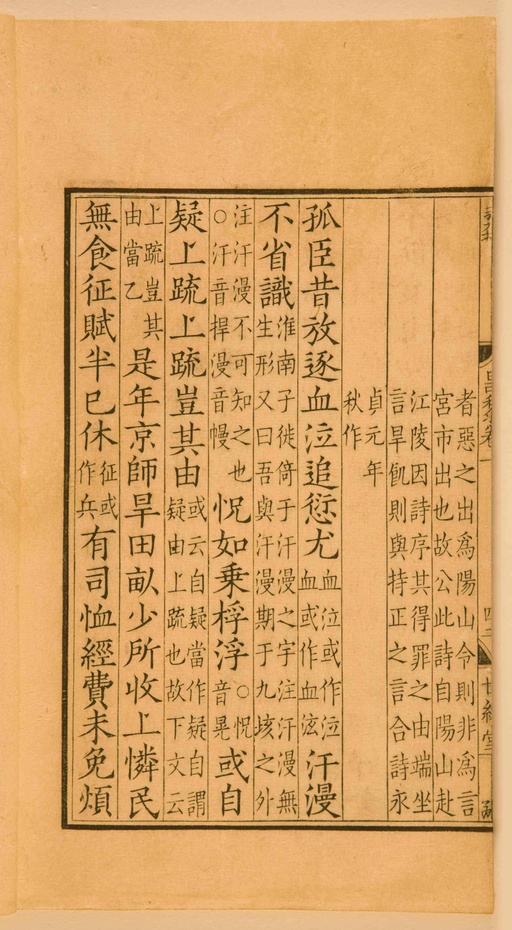 昌黎集卷一
者惡之出為陽山令則非為言
宮市出也故公此詩自陽山赴
江陵因詩序其得罪之由端坐
言旱飢則與持正之言合詩永
貞元年
秋作
孤臣昔放逐血泣追愆尤血泣或作泣血或作血泫汗漫
不省識淮南子徙倚于汗漫之宇注汗漫無生形又曰吾與汗漫期于九垓之外
注汗漫不可知之也○汗音捍漫音幔怳如乗桴浮○怳音晃或自
疑上䟽上䟽豈其由或云自疑當作疑自謂疑由上䟽也故下文云
上䟽豈其由當乙是年京師旱田畝少所收上憐民
無食征賦半已休征或作兵有司恤經費未免煩